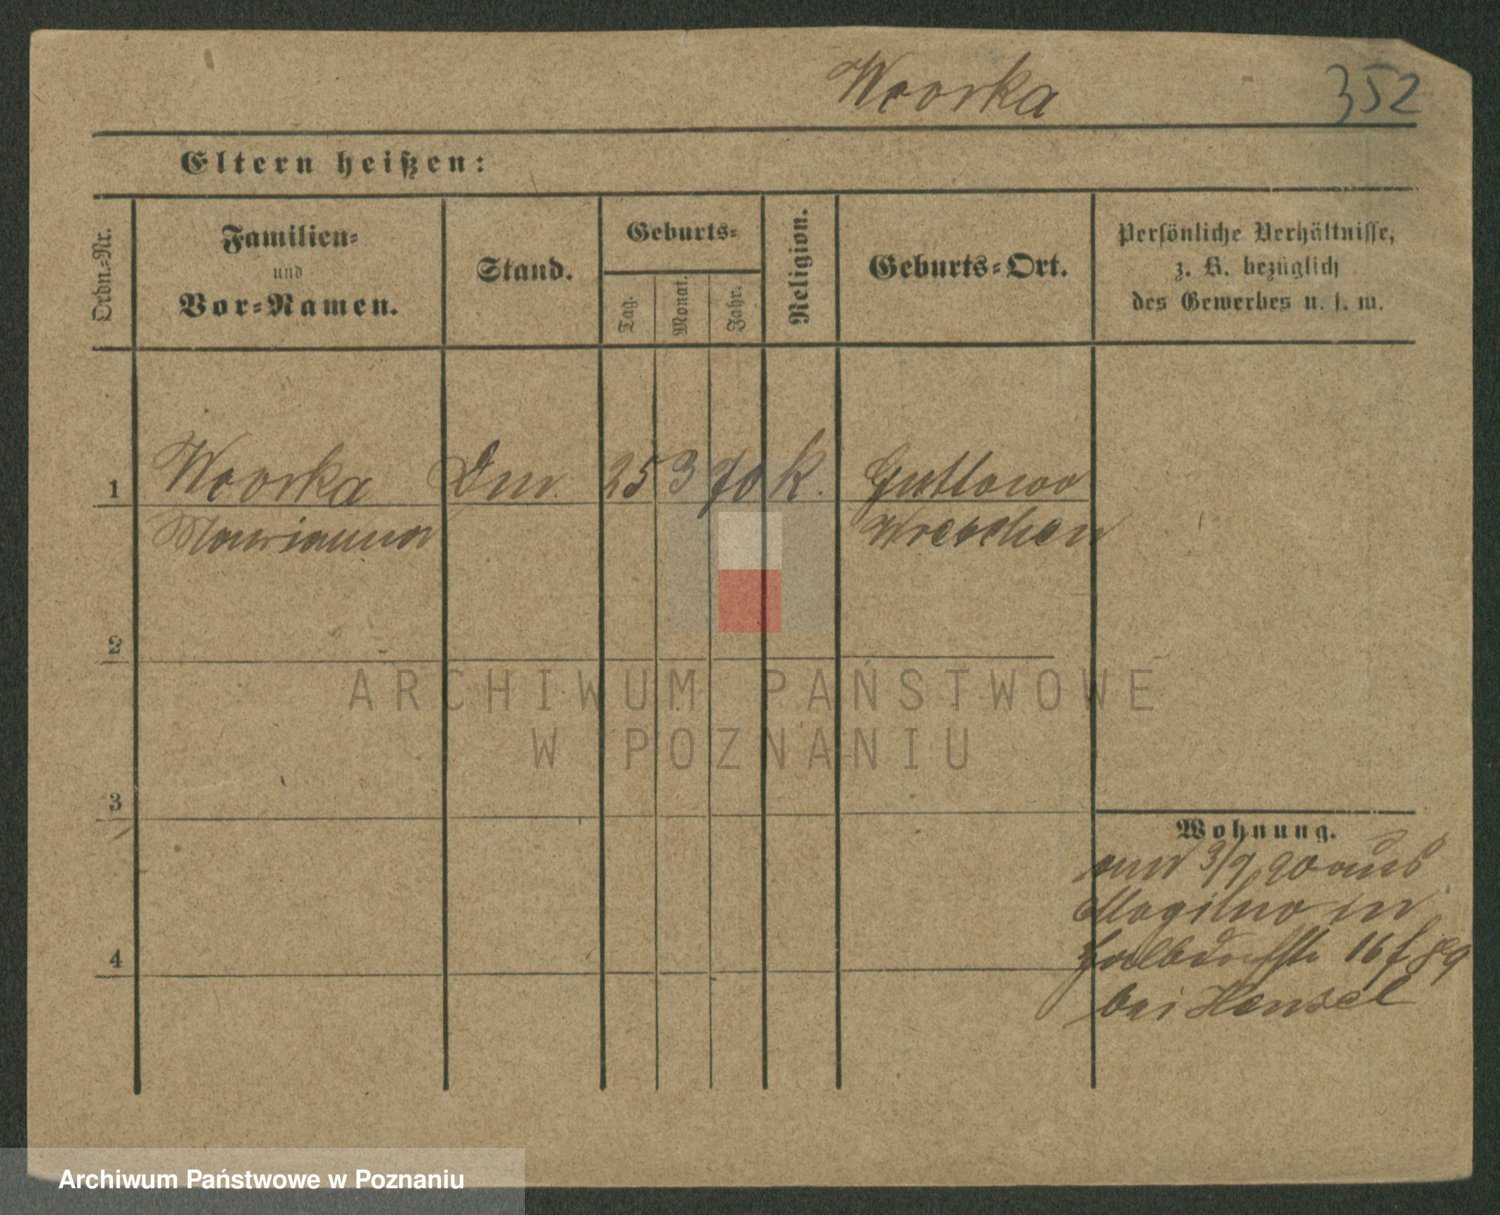 Woorka 352
Eltern heißen:
Ordn.-Nr.
Familien-
und
Vor-Namen.
Stand.
Geburts-
Tag.
Monat.
Jahr.
Religion.
Geburts-Ort.
Persönliche Verhältnisse,
z. B. bezüglich
des Gewerbes u. s. w.
1 Woorka 25 3 70 k. Guttowo
Marianna Wreschen
2
3
4
Wohnung.
3/9 90 aus
Mogilno in
Halbdorfstr 16
bei Hensel
ARCHIWUM PAŃSTWOWE
W POZNANIU
Archiwum Państwowe w Poznaniu